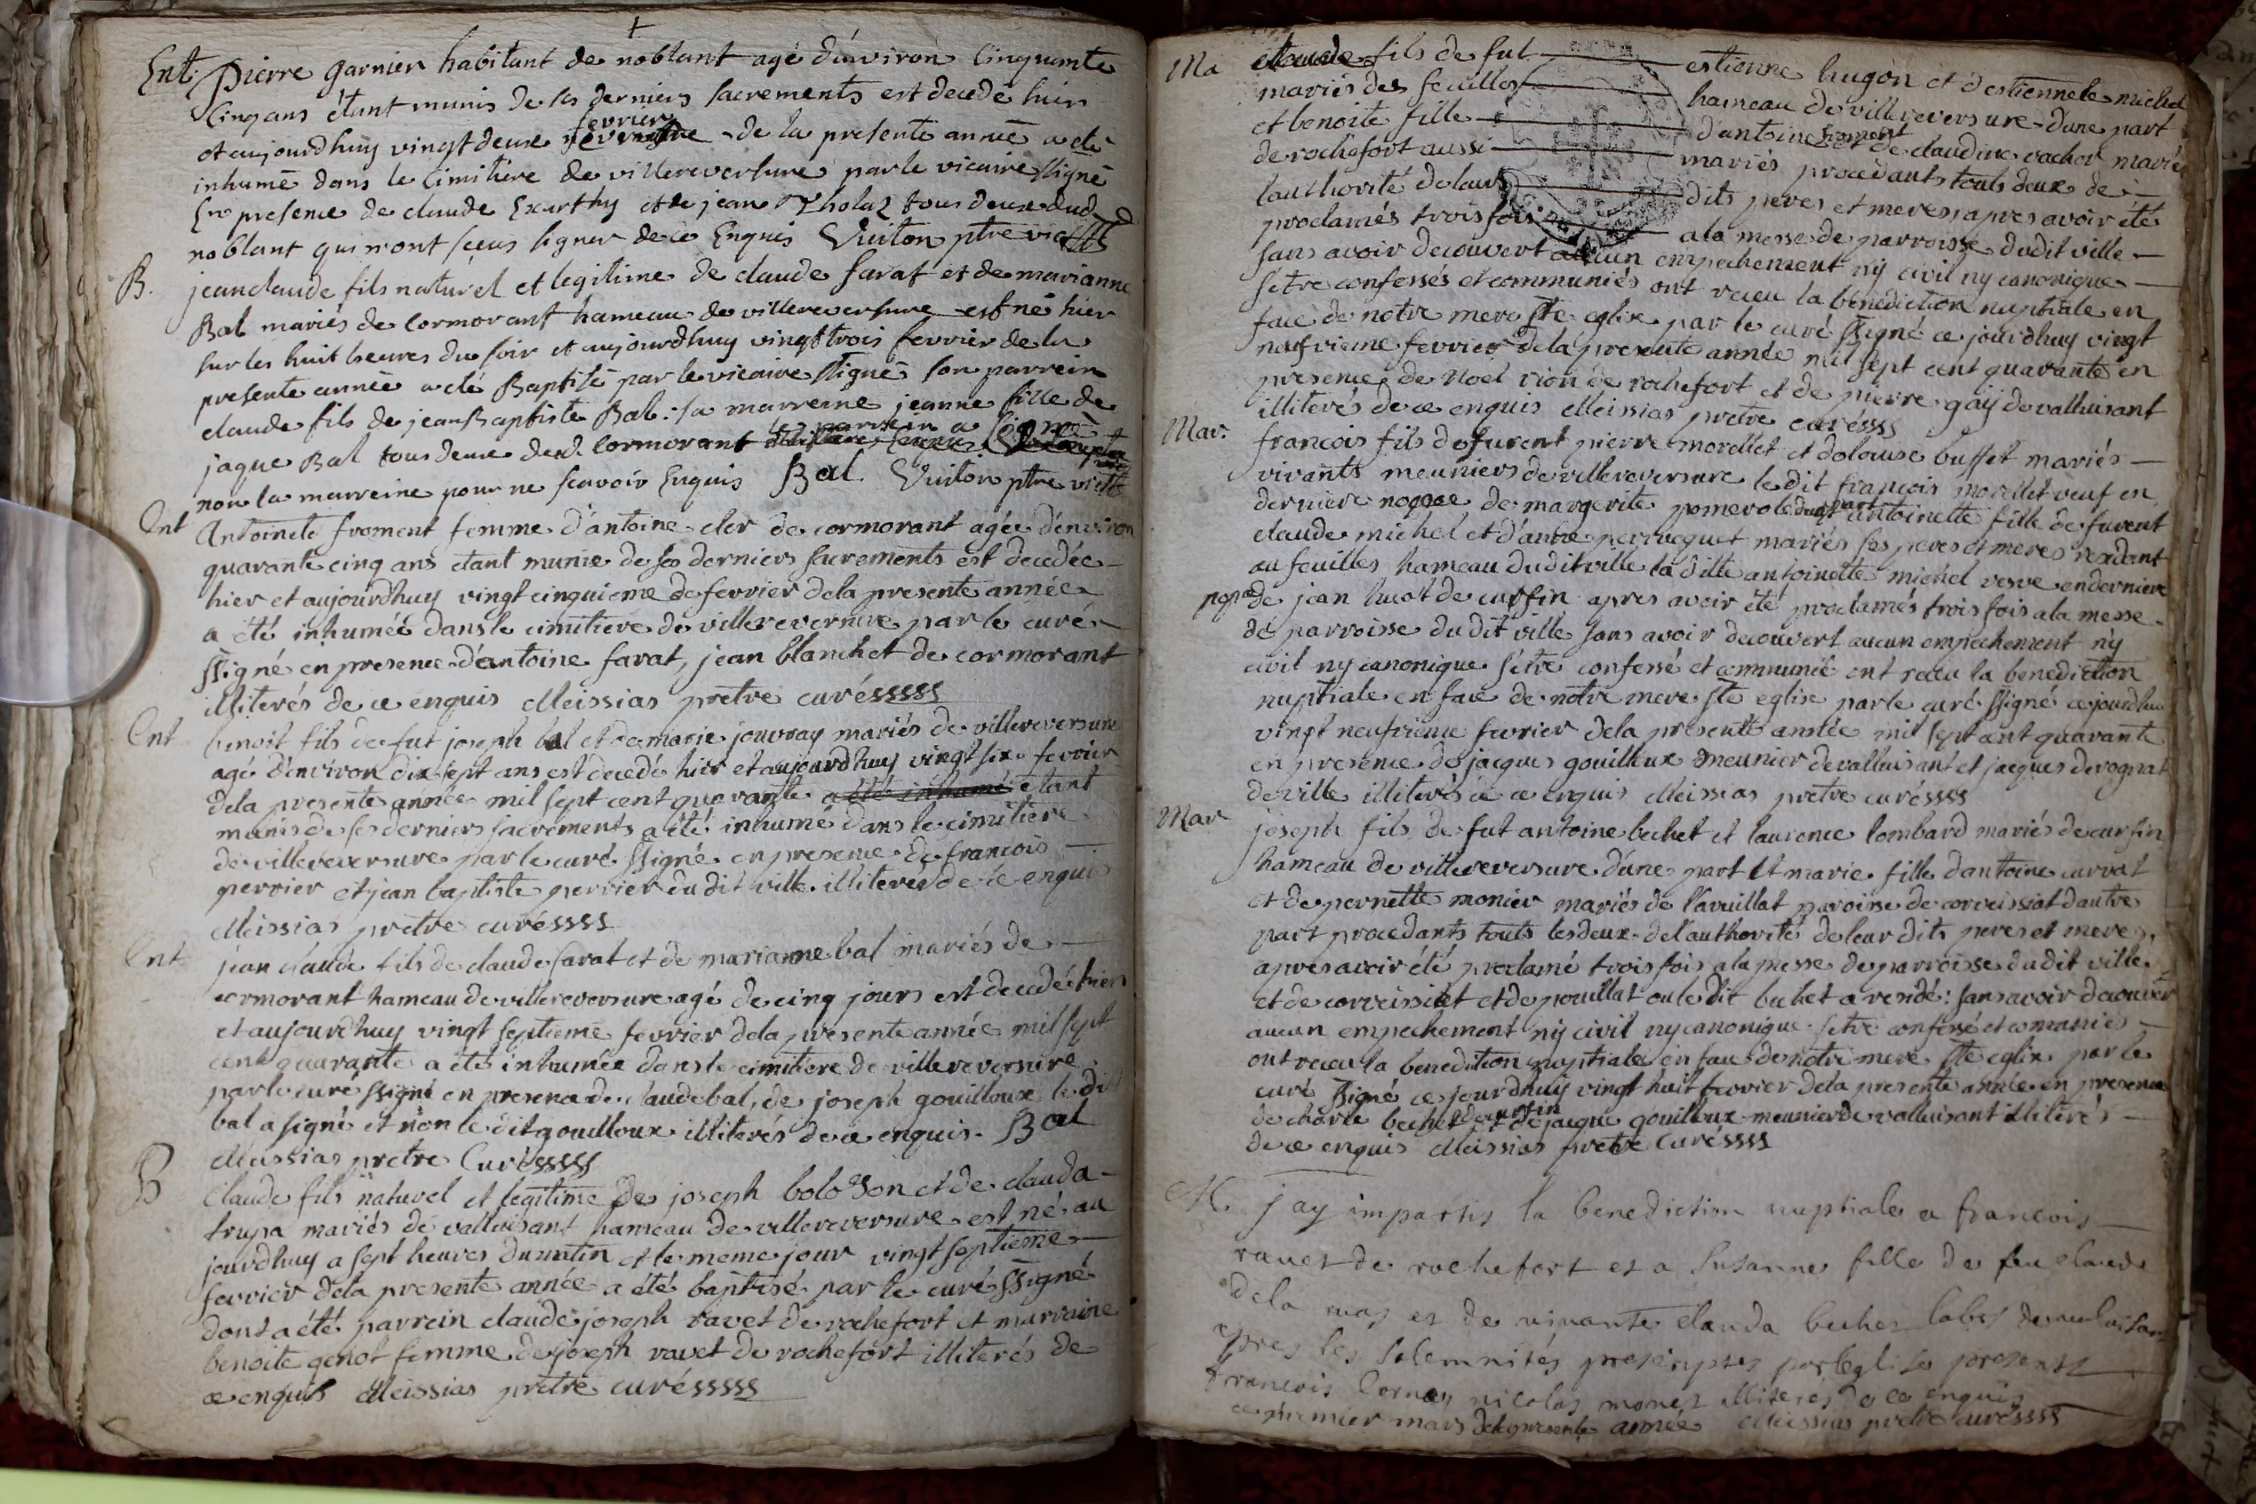 Ent. Pierre garnier habitant de noblant agé d'environ Cinquante
Cinq ans étant munis de ses derniers sacrements est decedé hier
fevrier
et aujourdhuy vingt deux de la presente année a eté
inhumé dans le Cimitiere de villereversure par le vicaire ssigné
En presence de claude et de jean tous deux dud
noblant qui n'ont sceus signer de ce Enquis Vuiton ptre vic
B. jean claude fils naturel et legitime de claude farat et de marianne
Bal mariés de Cormorant hameau de villereversure est né hier
sur les huit heures du soir et aujourdhuy vingt trois fevrier de la
presente année a eté Baptisé par le vicaire ssigné son parrein
claude fils de jean Baptiste Bal : sa marreine jeanne fille de
le parrein a signé
jaque Bal tous deux dud. Cormorant
non la marreine pour ne scavoir Enquis Bal. Vuiton ptre vic
Ent Antoinete froment femme d'antoine cler de cormorant agée d'environ
quarante cinq ans etant munie de ses derniers sacrements est decedée
hier et aujourdhuy vingt cinquieme de fevrier dela presente année
a été inhumée dans le cimitiere de villereversure par le curé
ssigné en presence d'antoine farat, jean blanchet de cormorant
illiterés de ce enquis Meissias pretre curésssss
Ent benoit fils de fut joseph bal et de marie jouvray mariés de villereversure
agé d'environ dix sept ans est decedé hier et aujourdhuy vingt six fevrier
dela presente année mil sept cent quarante a été inhumé étant
munis de ses derniers sacrements a été inhumé dans le cimitiere
de villereversure par le curé ssigné en presence de francois
perrier et jean baptiste perrier du dit ville illiterés de ce enquis
Meissias pretre curéssss
Ent jean claude fils de claude farat et de marianne bal mariés de
cormorant hameau de villereversure agé de cinq jours est decedé hier
et aujourdhuy vingt septieme fevrier dela presente année mil sept
cent quarante a été inhumée dans le cimitiere de villereversure
par le curé ssigné en presence de claude bal, de joseph gouilloux le dit
bal a signé et non le dit gouilloux illiterés de ce enquis. Bal
Meissias pretre Curésssss
B Claude fils naturel et legitime de joseph bolozon et de clauda
trupa mariés de valluisant hameau de villereversure est né au
jourdhuy a sept heures du matin et le meme jour vingt septieme
fevrier dela presente année a été baptisé par le curé ssigné
dont a été parrein claude joseph ravet de rochefort et marraine
benoite genot femme de joseph ravet de rochefort illiterés de
ce enquis Meissias pretre curésssss
Ma claude fils de fut estienne hugon et d'estiennete michel
mariés des feuilles hameau de villereversure d'une part
et benoite fille d'antoine froment et de claudine vacher mariés
de rochefort aussi mariés procedants touts deux de
l'authorité de leurs dits peres et meres, apres avoir été
proclamés trois fois a la messe de parroisse dudit ville
sans avoir decouvert aucun empechement ny civil ny canonique
s'etre confessés et communiés ont receu la benediction nuptiale en
face de notre mere ste eglise par le curé ssigné ce jourdhuy vingt
neufvieme fevrier dela presente année mil sept cent quarante en
presence de noel rion de rochefort et de pierre gay de valluisant
illiterés de ce enquis Meissias pretre curéssss
Mar. francois fils de furent pierre morellet et de louise buffet mariés
vivants meuniers de villereversure le dit francois morellet veuf en
derniere nopce de margerite pomerole d'une part antoinette fille de furent
claude michel et d'antoi perruquet mariés ses peres et meres residant
au feuilles hameau dudit ville la ditte antoinette michel veuve en derniere
nopce de jean huot de curfin apres avoir été proclamés trois fois a la messe
de parroisse du dit ville sans avoir decouvert aucun empechement ny
civil ny canonique s'etre confessé et communié ont receu la benediction
nuptiale en face de notre mere ste eglise par le curé ssigné ce jourdhuy
vingt neufvieme fevrier dela presente année mil sept cent quarante
en presence de jacques gouilloux meunier de valluisant et jacques derognat
de ville illiterés de ce enquis Meissias pretre curéssss
Mar joseph fils de fut antoine bechet et laurence lombard mariés de curfin
hameau de villereversure d'une part et marie fille d'antoine curvat
et de pernette monier mariés de l'avuillat paroisse de corveissiat d'autre
part procedants touts les deux de l'authorité de leur dits peres et meres,
apres avoir été proclamé trois fois a la messe de parroisse du dit ville
et de corveissiat et de pouillat ou le dit bechet a residé : sans avoir decouvert
aucun empechement ny civil ny canonique s'etre confessé et communiés
ont receu la benediction nuptiale en face de notre mere ste eglise par le
curé ssigné ce jourdhuy vingt huit fevrier dela presente année en presence
de charle bechet de curfin et de jacque gouilloux meunier de valluisant illiterés
de ce enquis Meissias pretre Curéssss
M. j'ay impartis la benediction nuptiale a francois
ravet de rochefort et a Susanne fille de feu claude
dela mas et de vivante clauda bechet de valuisant
apres les solemnités prescriptes par leglise presents
francois Cornay nicolas monet illiterés de ce enquis
ce premier mars dela presente année Meissias pretre curéssss